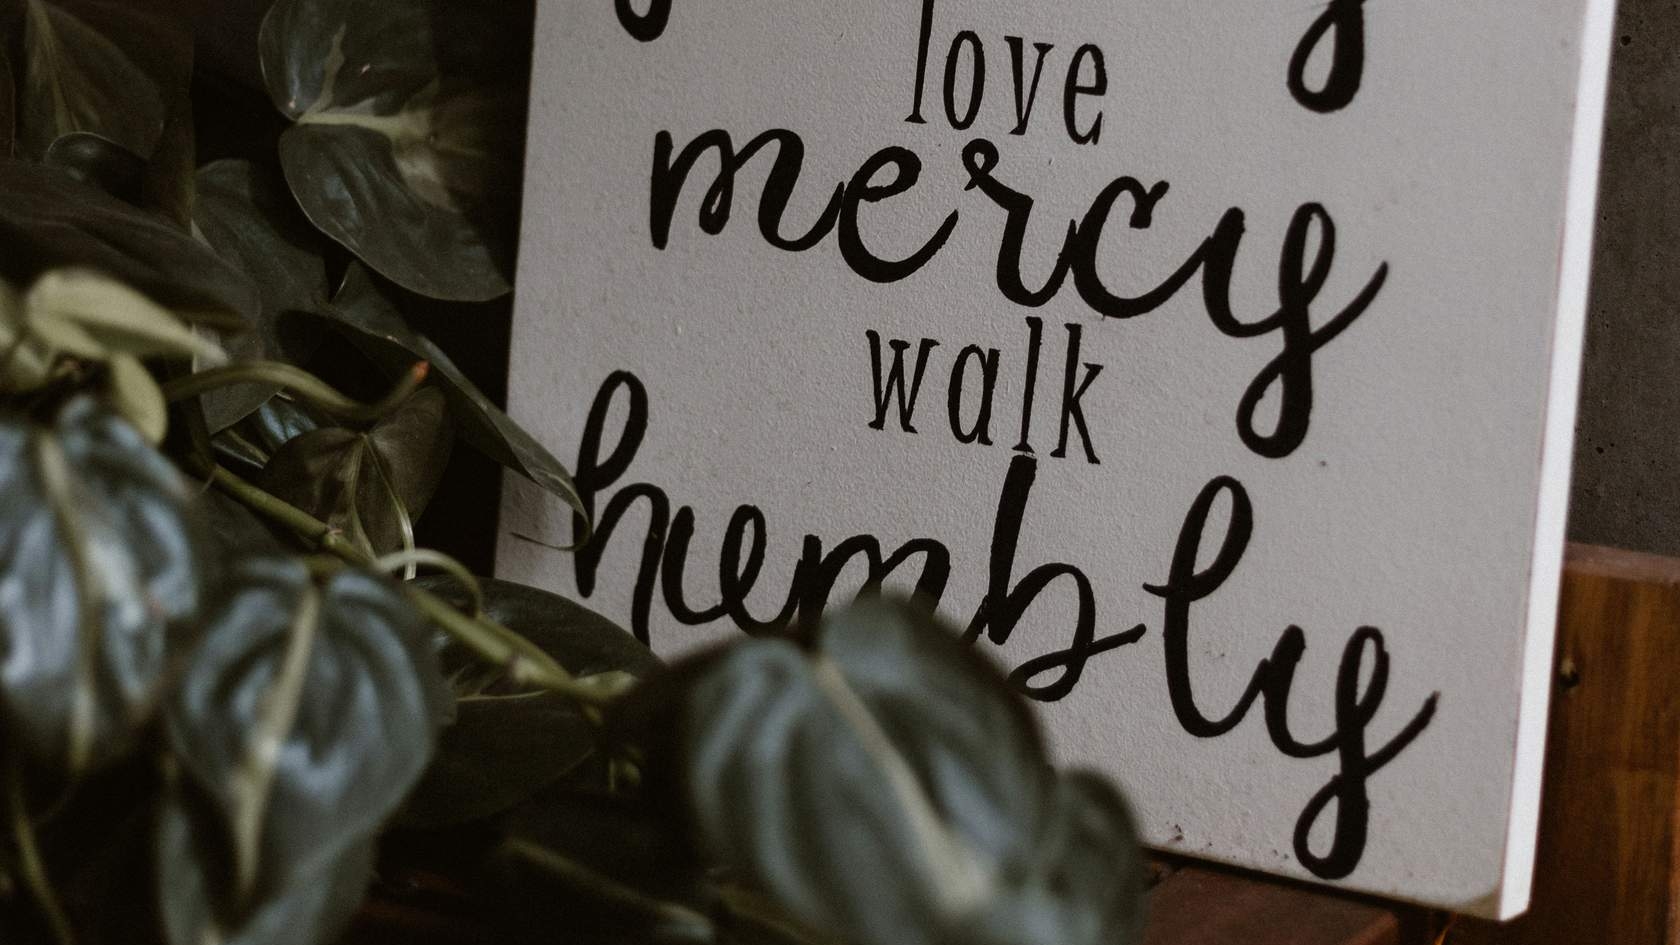 love
mercy
walk
humbly